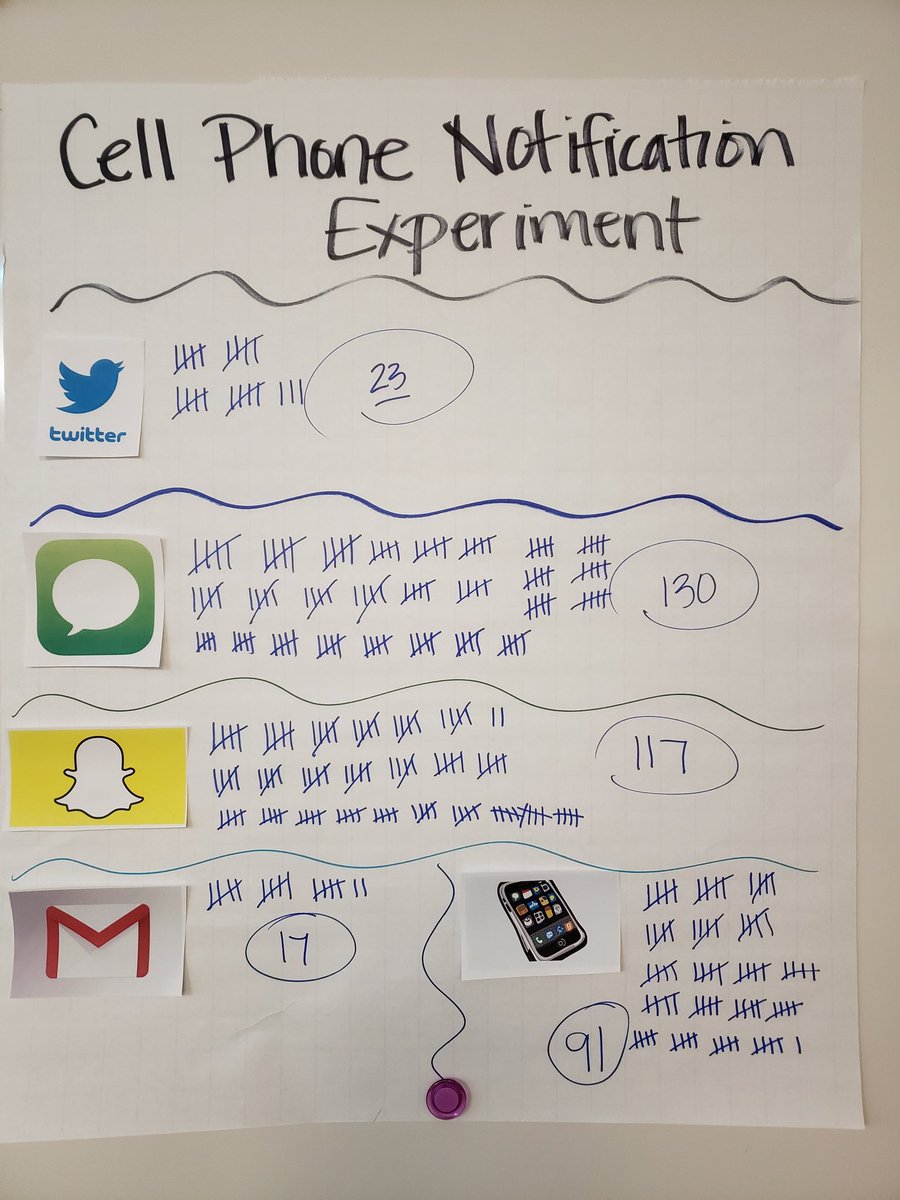 Cell Phone Notification
Experiment
twitter
23
130
117
17
91